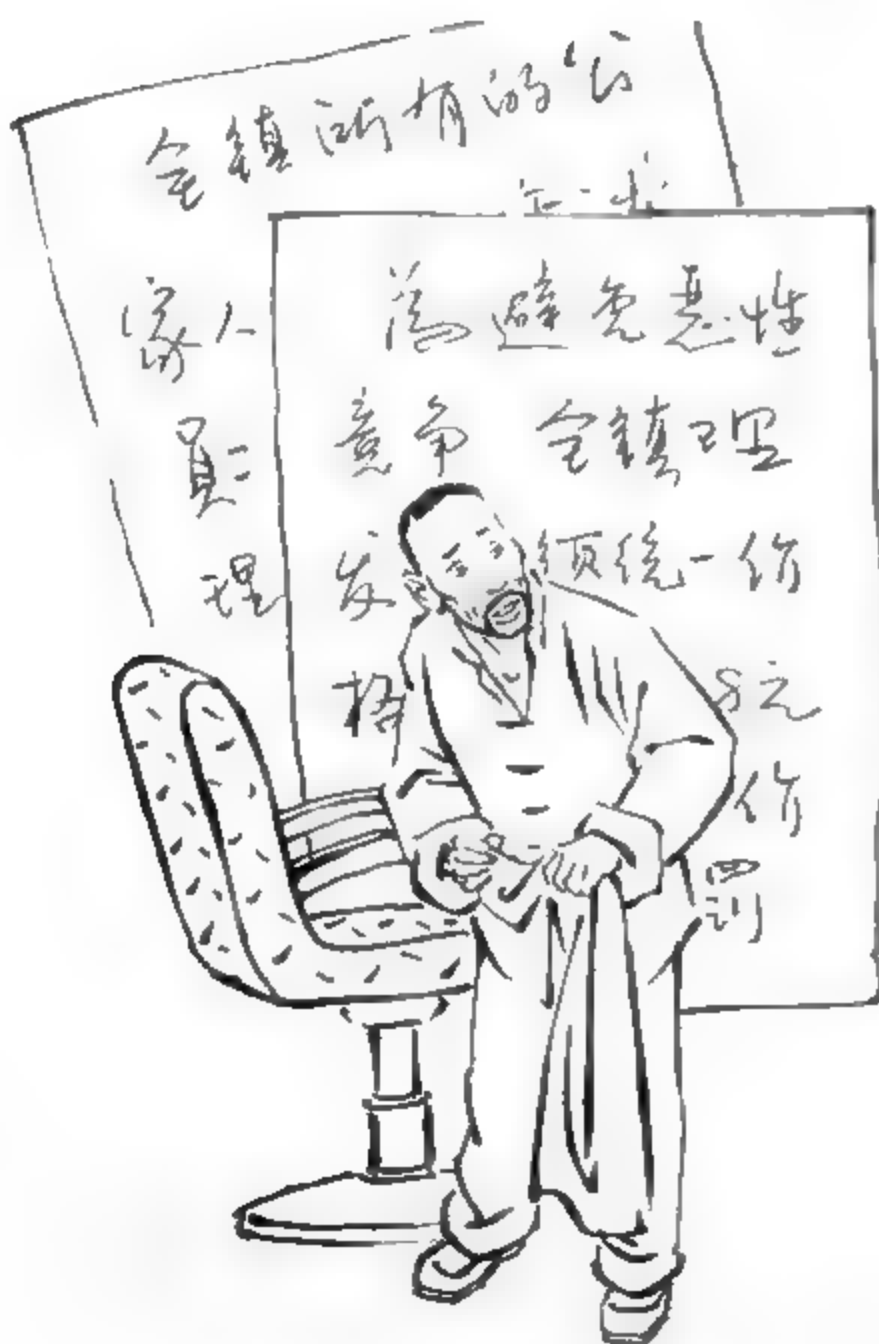 全镇所有的公
家人
員
理
為避免恶性
竞争 全镇理
发 须统一价
格 8元
价
罚